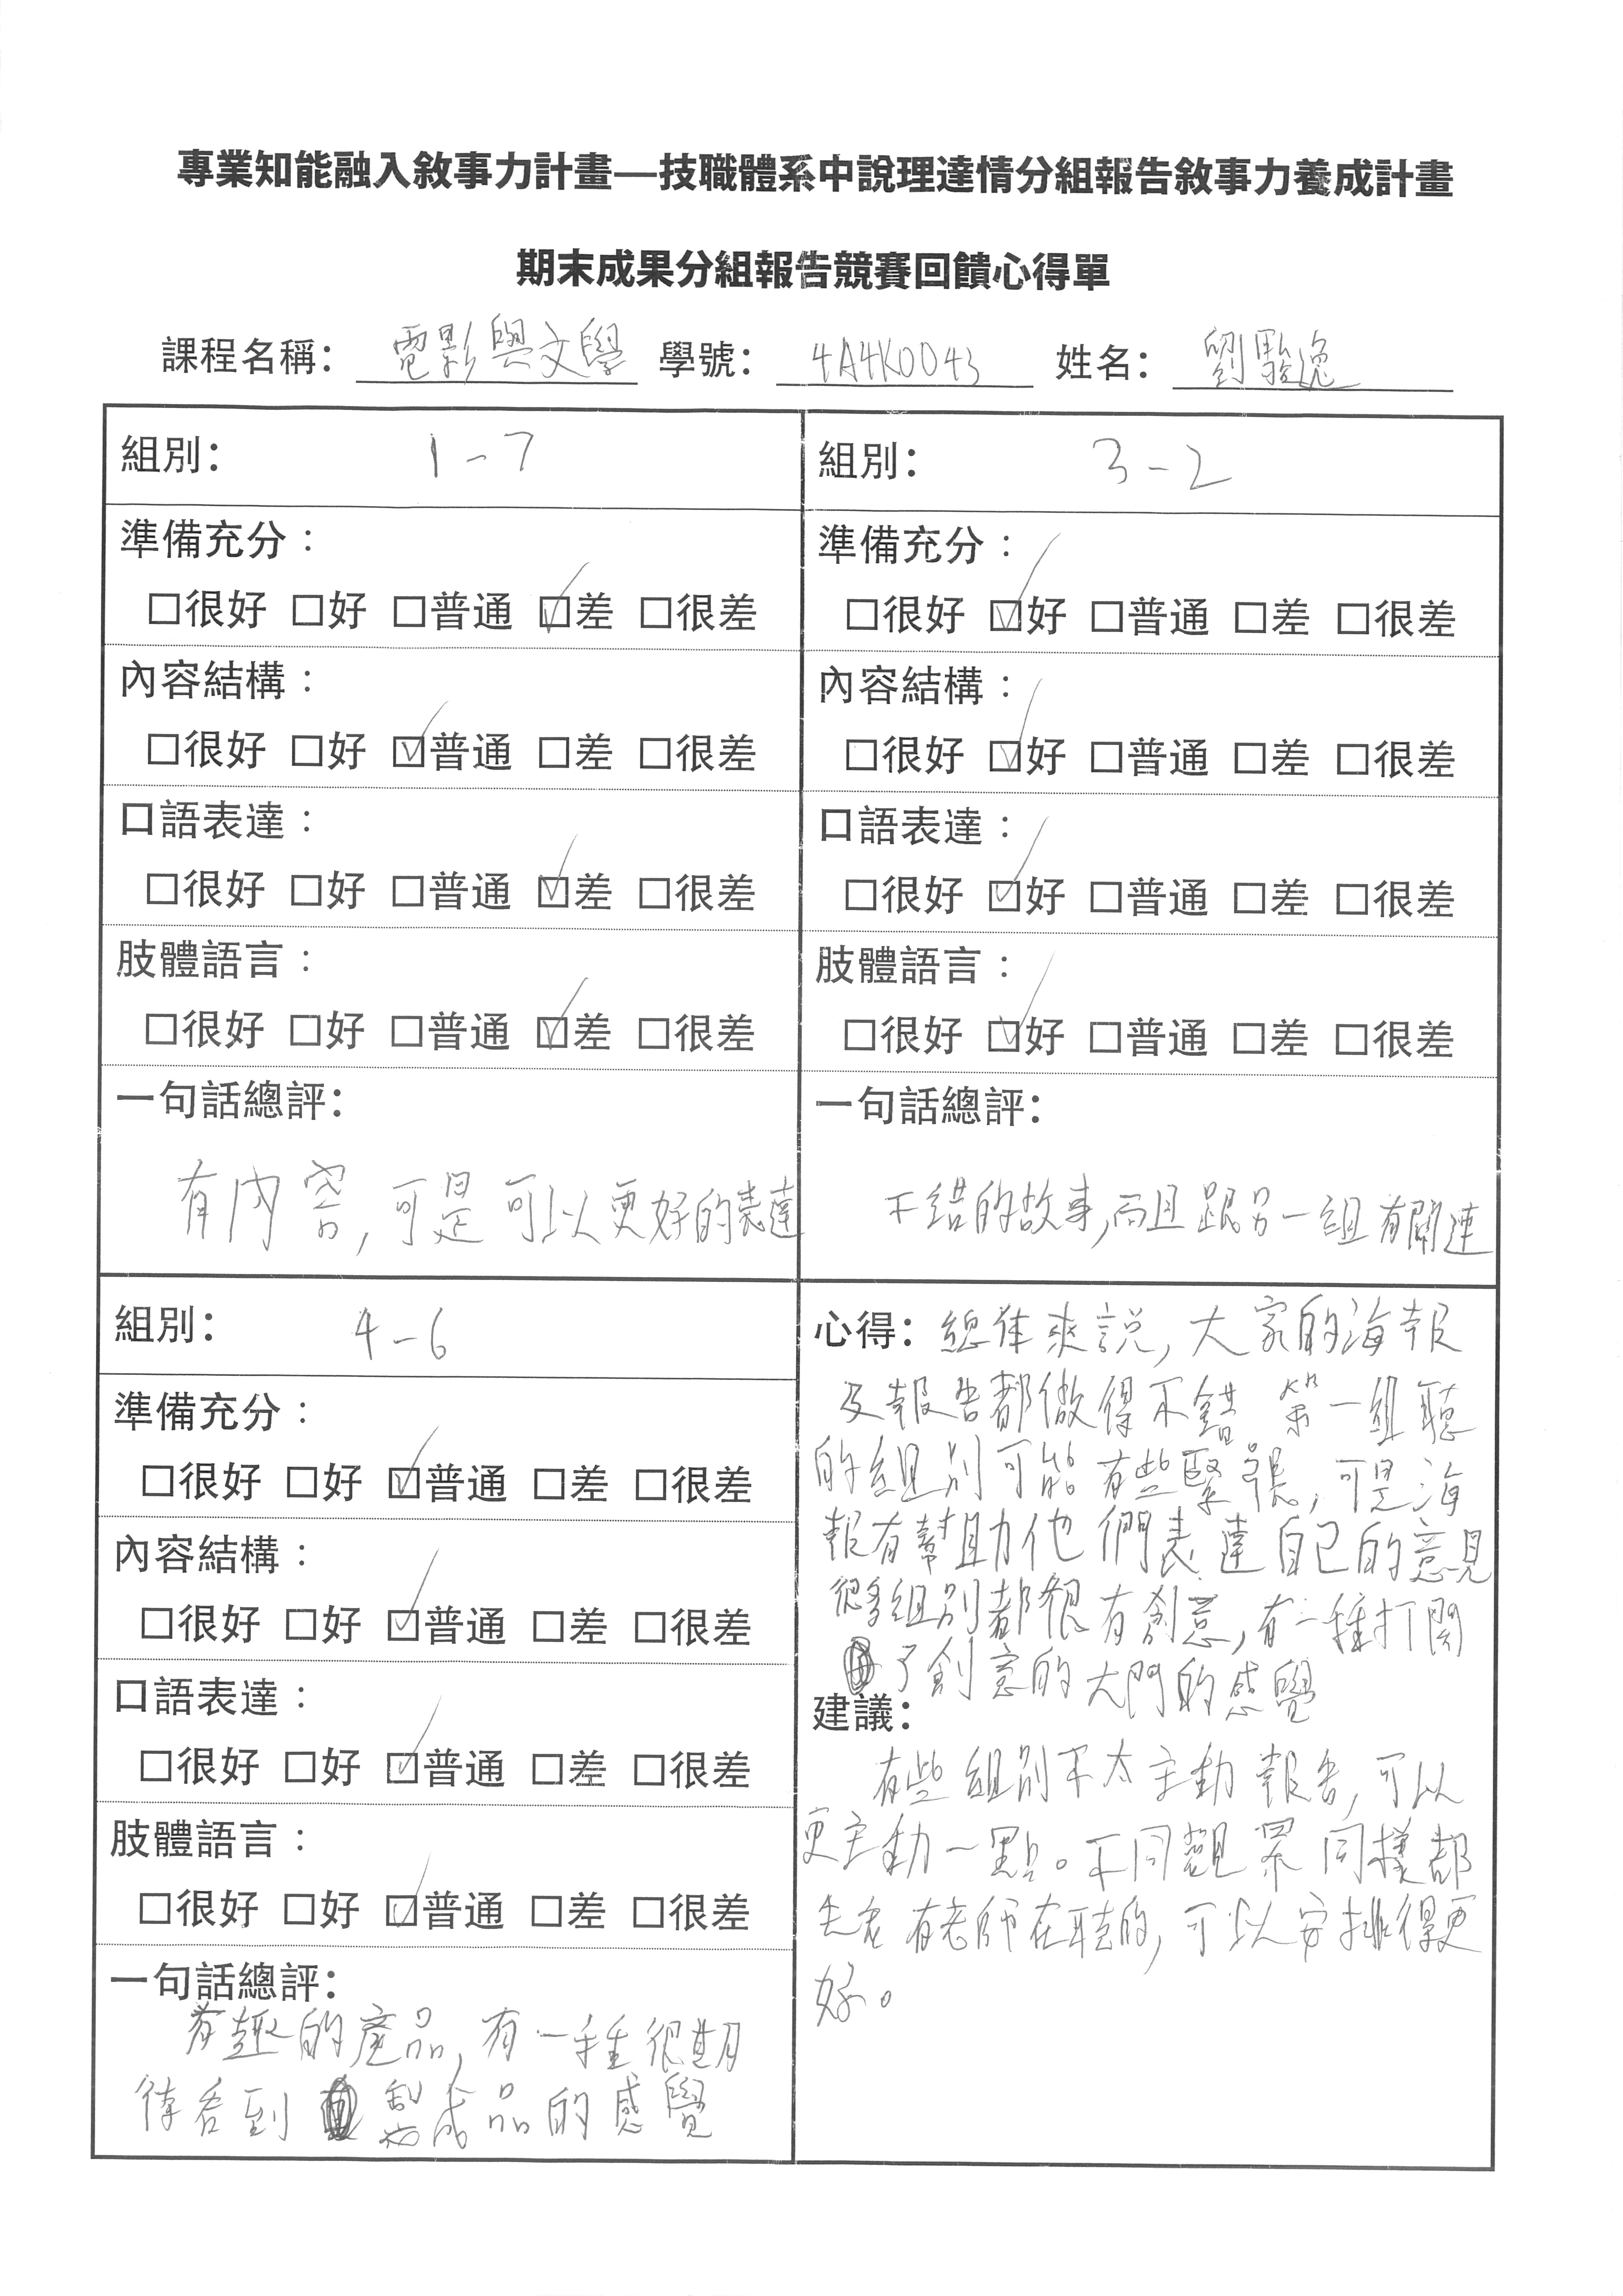 專業知能融入敘事力計畫—技職體系中說理達情分組報告敘事力養成計畫
期末成果分組報告競賽回饋心得單
課程名稱： 電影與文學 學號： 4A4K0043 姓名： 劉駿逸
組別： 1-7
準備充分：
□很好 □好 □普通 ☑差 □很差
內容結構：
□很好 □好 ☑普通 □差 □很差
口語表達：
□很好 □好 □普通 ☑差 □很差
肢體語言：
□很好 □好 □普通 ☑差 □很差
一句話總評：
有內容,可是可以更好的表達
組別： 3-2
準備充分：
□很好 ☑好 □普通 □差 □很差
內容結構：
□很好 ☑好 □普通 □差 □很差
口語表達：
□很好 ☑好 □普通 □差 □很差
肢體語言：
□很好 ☑好 □普通 □差 □很差
一句話總評：
不錯的故事,而且跟另一組有關連
組別： 4-6
準備充分：
□很好 □好 ☑普通 □差 □很差
內容結構：
□很好 □好 ☑普通 □差 □很差
口語表達：
□很好 □好 ☑普通 □差 □很差
肢體語言：
□很好 □好 ☑普通 □差 □很差
一句話總評：
有趣的產品,有一種很期
待看到 製成品的感覺
心得： 總体來說,大家的海報
及報告都做得不錯 第一組聽
的組別可能有些緊張,可是海
報有幫助他們表達自己的意見
很多組別都很有創意,有一種打開
了創意的大門的感覺
建議：
有些組別不太主動報告,可以
更主動一點。不同觀眾同樣都
有老師在聽的,可以安排得更
好。